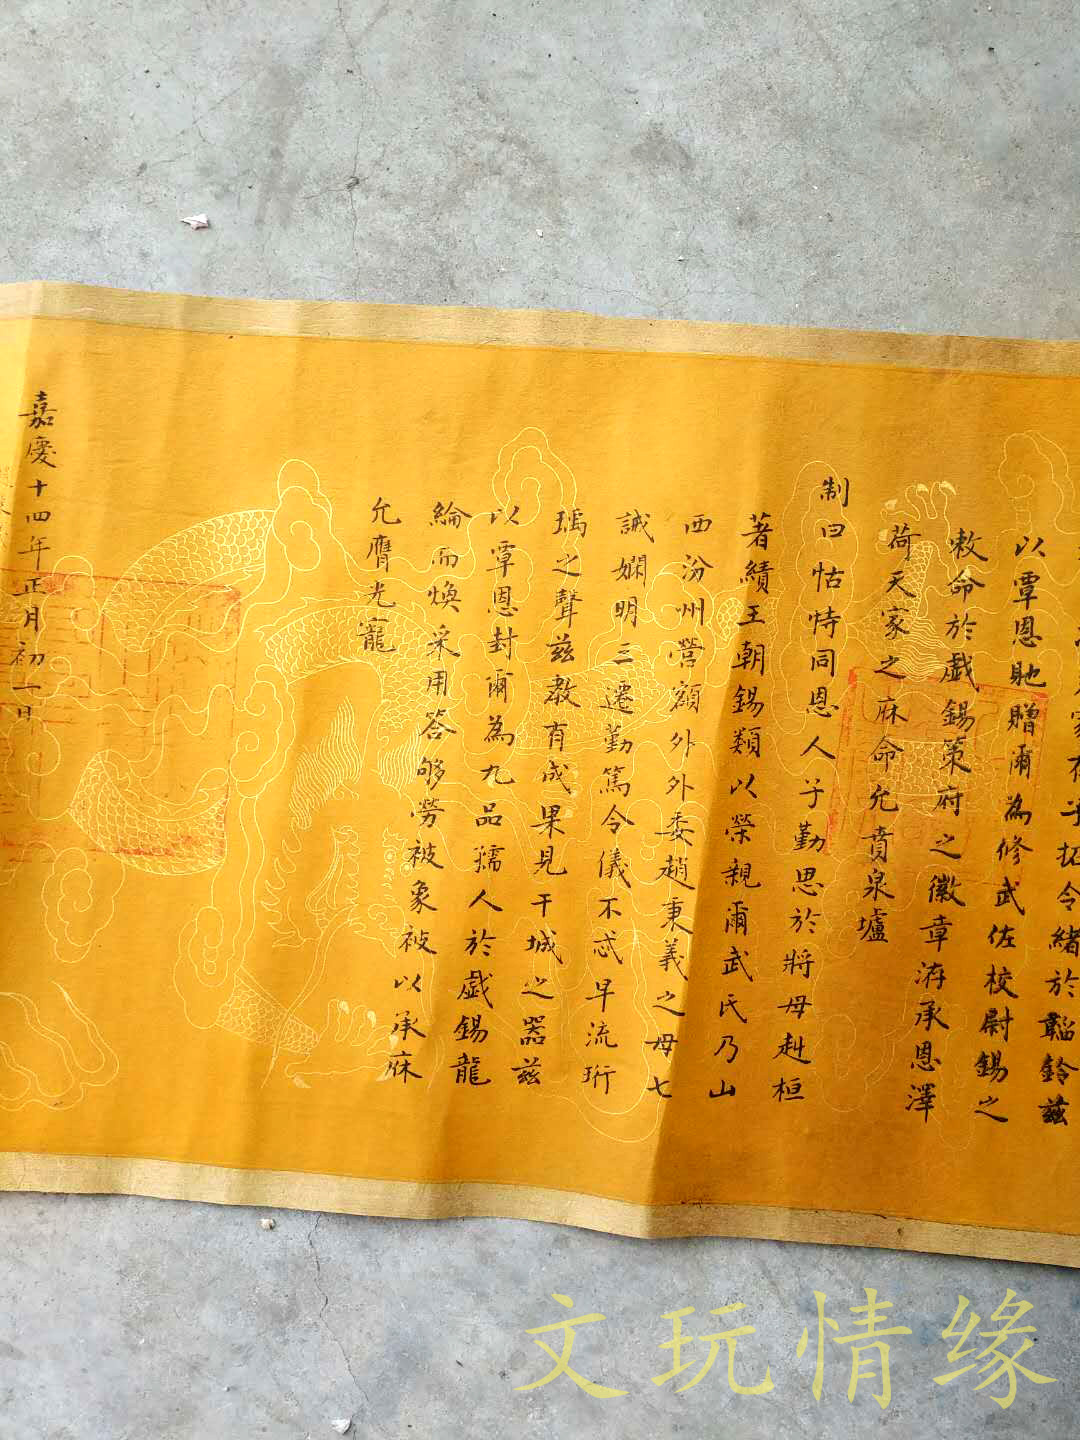 家在子招令緒於韜鈐茲
以覃恩貤贈爾為修武佐校尉錫之
敕命於戲錫策府之徽章洊承恩澤
荷天家之庥命允賁泉壚
制曰怙恃同恩人子勤思於將母赳桓
著績王朝錫類以榮親爾武氏乃山
西汾州營額外外委趙秉義之母七
誡嫻明三遷勤篤令儀不忒早流珩
瑀之聲茲教有成果見干城之器茲
以覃恩封爾為九品孺人於戲錫龍
綸而煥采用答够勞被象被以承庥
允膺光寵
嘉慶十四年正月初一日
文玩情缘